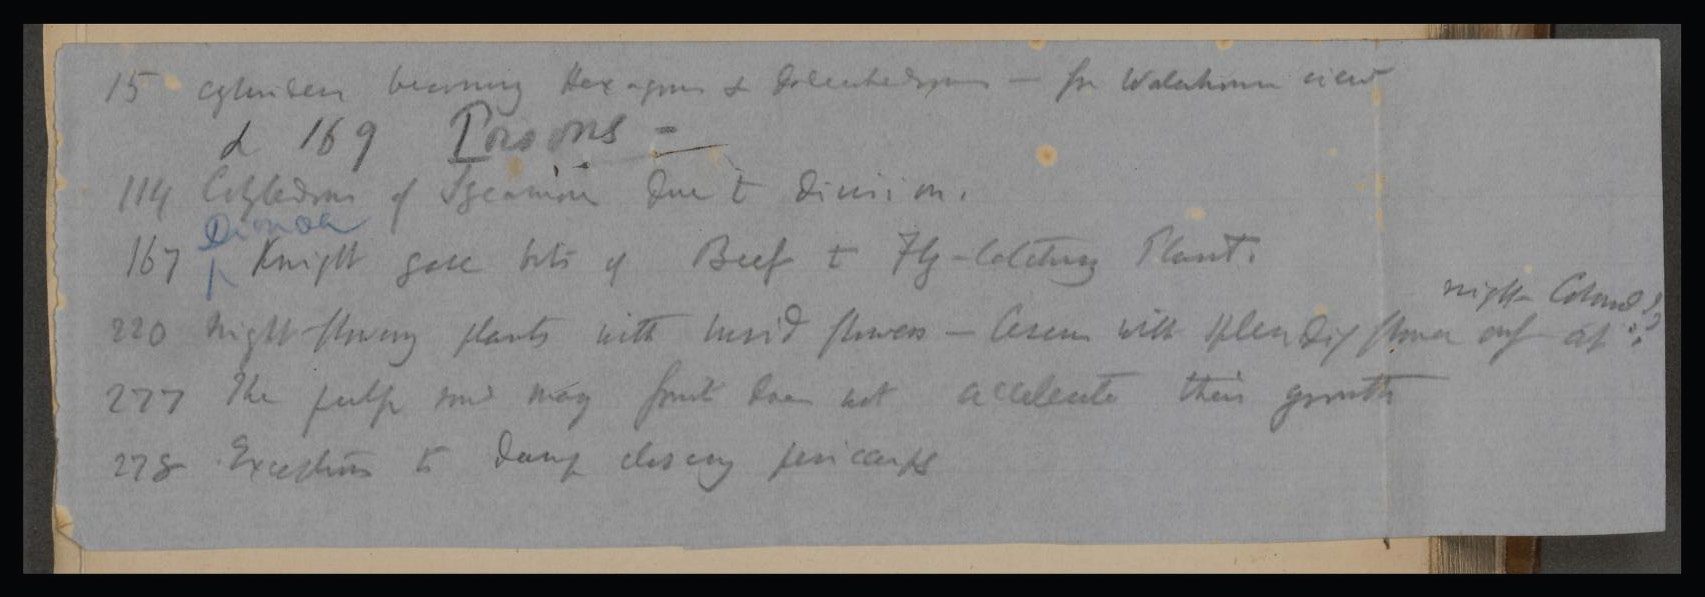 15 cylinders becoming Hexagons & dodecahedrons — for Waterhouse view
& 169 Poisons —
114 Cotyledons of Sycamore due to division.
Dionœa
167 Knight gave bits of Beef to Fly-catching Plant.
night
220 Night-flowing plants with lurid flowers — Cereus with splendid flower only at
277 The pulp round many fruit does not accelerate their growth
278 Exceptions to damp closing pericarps